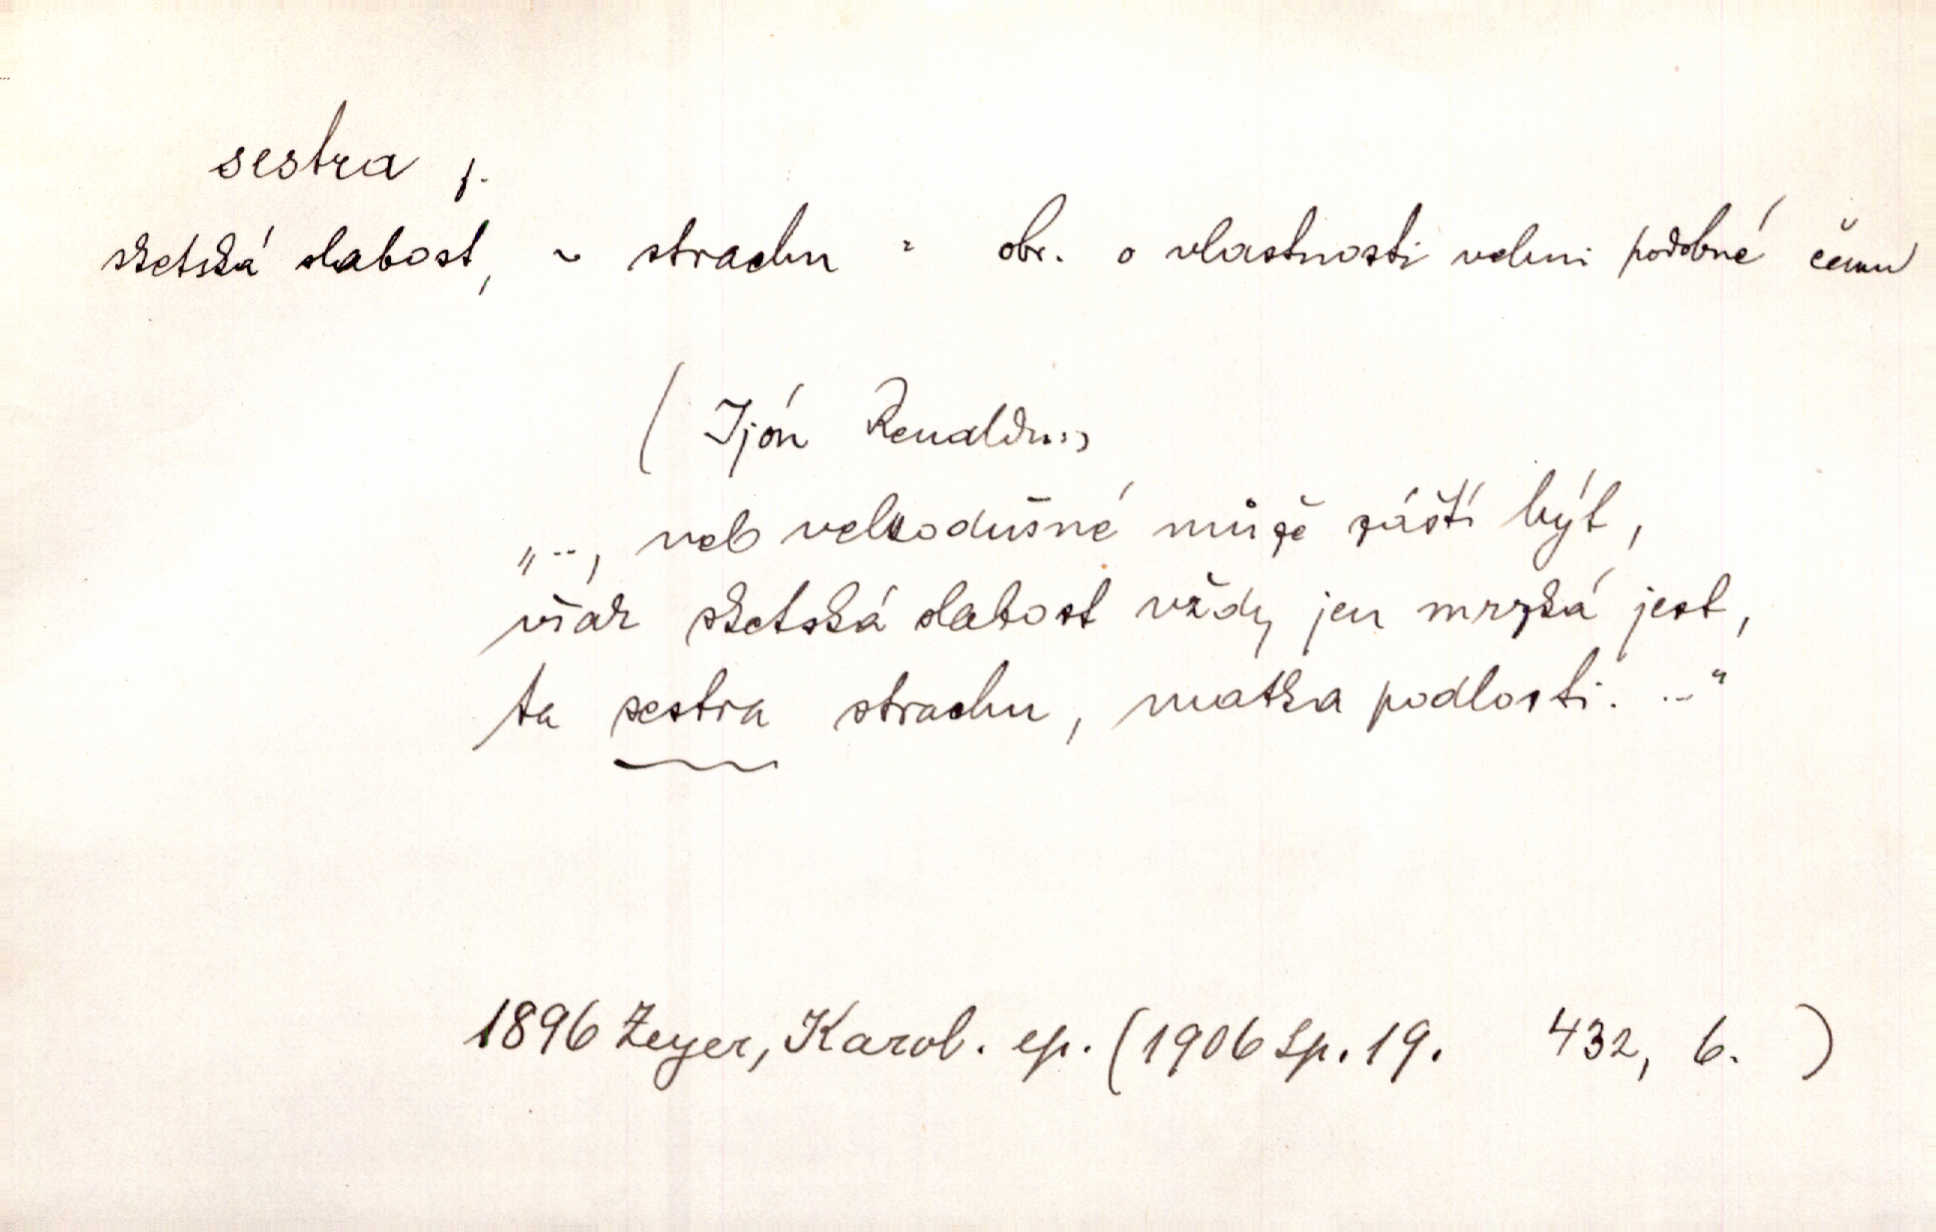 sestra f.
sketská slabost, ~ strachu = obr. o vlastnosti velmi podobné čemu
( Ijón Renaldu:)
„.., neb velkodušné může záští být,
však sketská slabost vždy jen mrzká jest,
ta sestra strachu, matka podlosti. .."
1896 Zeyer, Karol. ep. (1906 Sp. 19. 432, 6. )